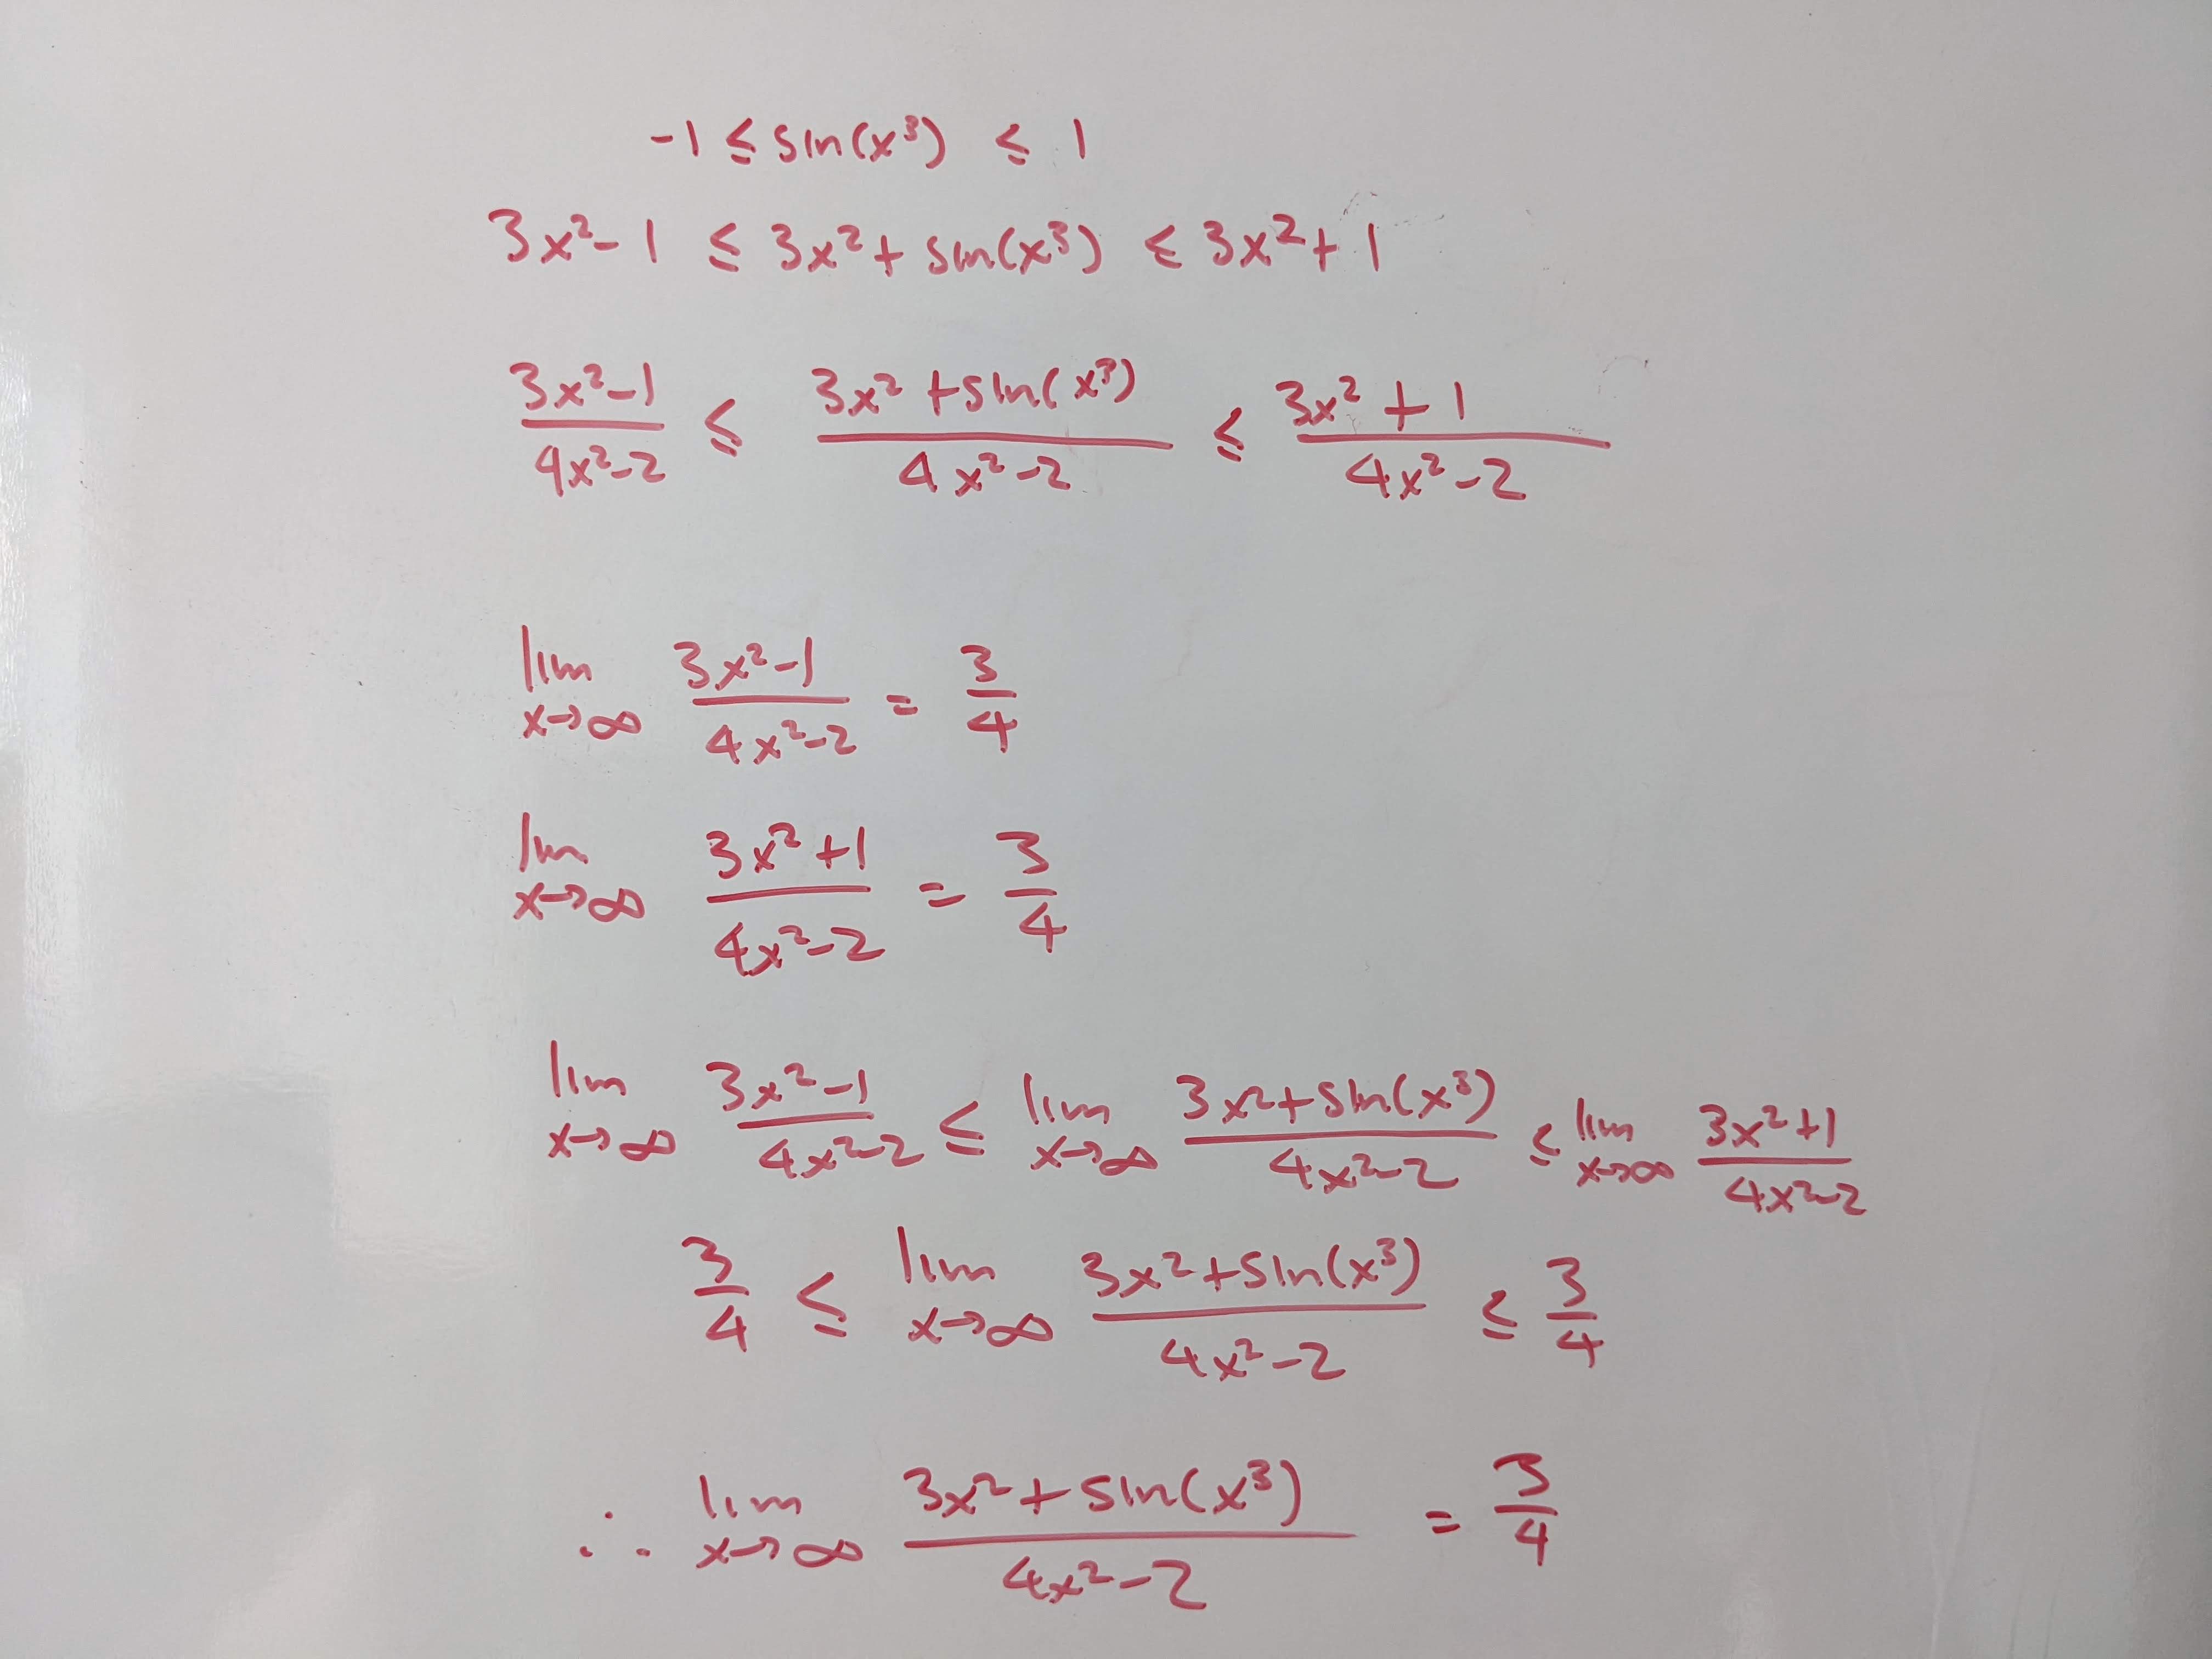 -1 ≤ sin(x³) ≤ 1
3x²-1 ≤ 3x²+ sin(x³) ≤ 3x²+ 1
(3x²-1)/(4x²-2) ≤ (3x²+sin(x³))/(4x²-2) ≤ (3x²+1)/(4x²-2)
lim x→∞ (3x²-1)/(4x²-2) = 3/4
lim x→∞ (3x²+1)/(4x²-2) = 3/4
lim x→∞ (3x²-1)/(4x²-2) ≤ lim x→∞ (3x²+sin(x³))/(4x²-2) ≤ lim x→∞ (3x²+1)/(4x²-2)
3/4 ≤ lim x→∞ (3x²+sin(x³))/(4x²-2) ≤ 3/4
∴ lim x→∞ (3x²+sin(x³))/(4x²-2) = 3/4